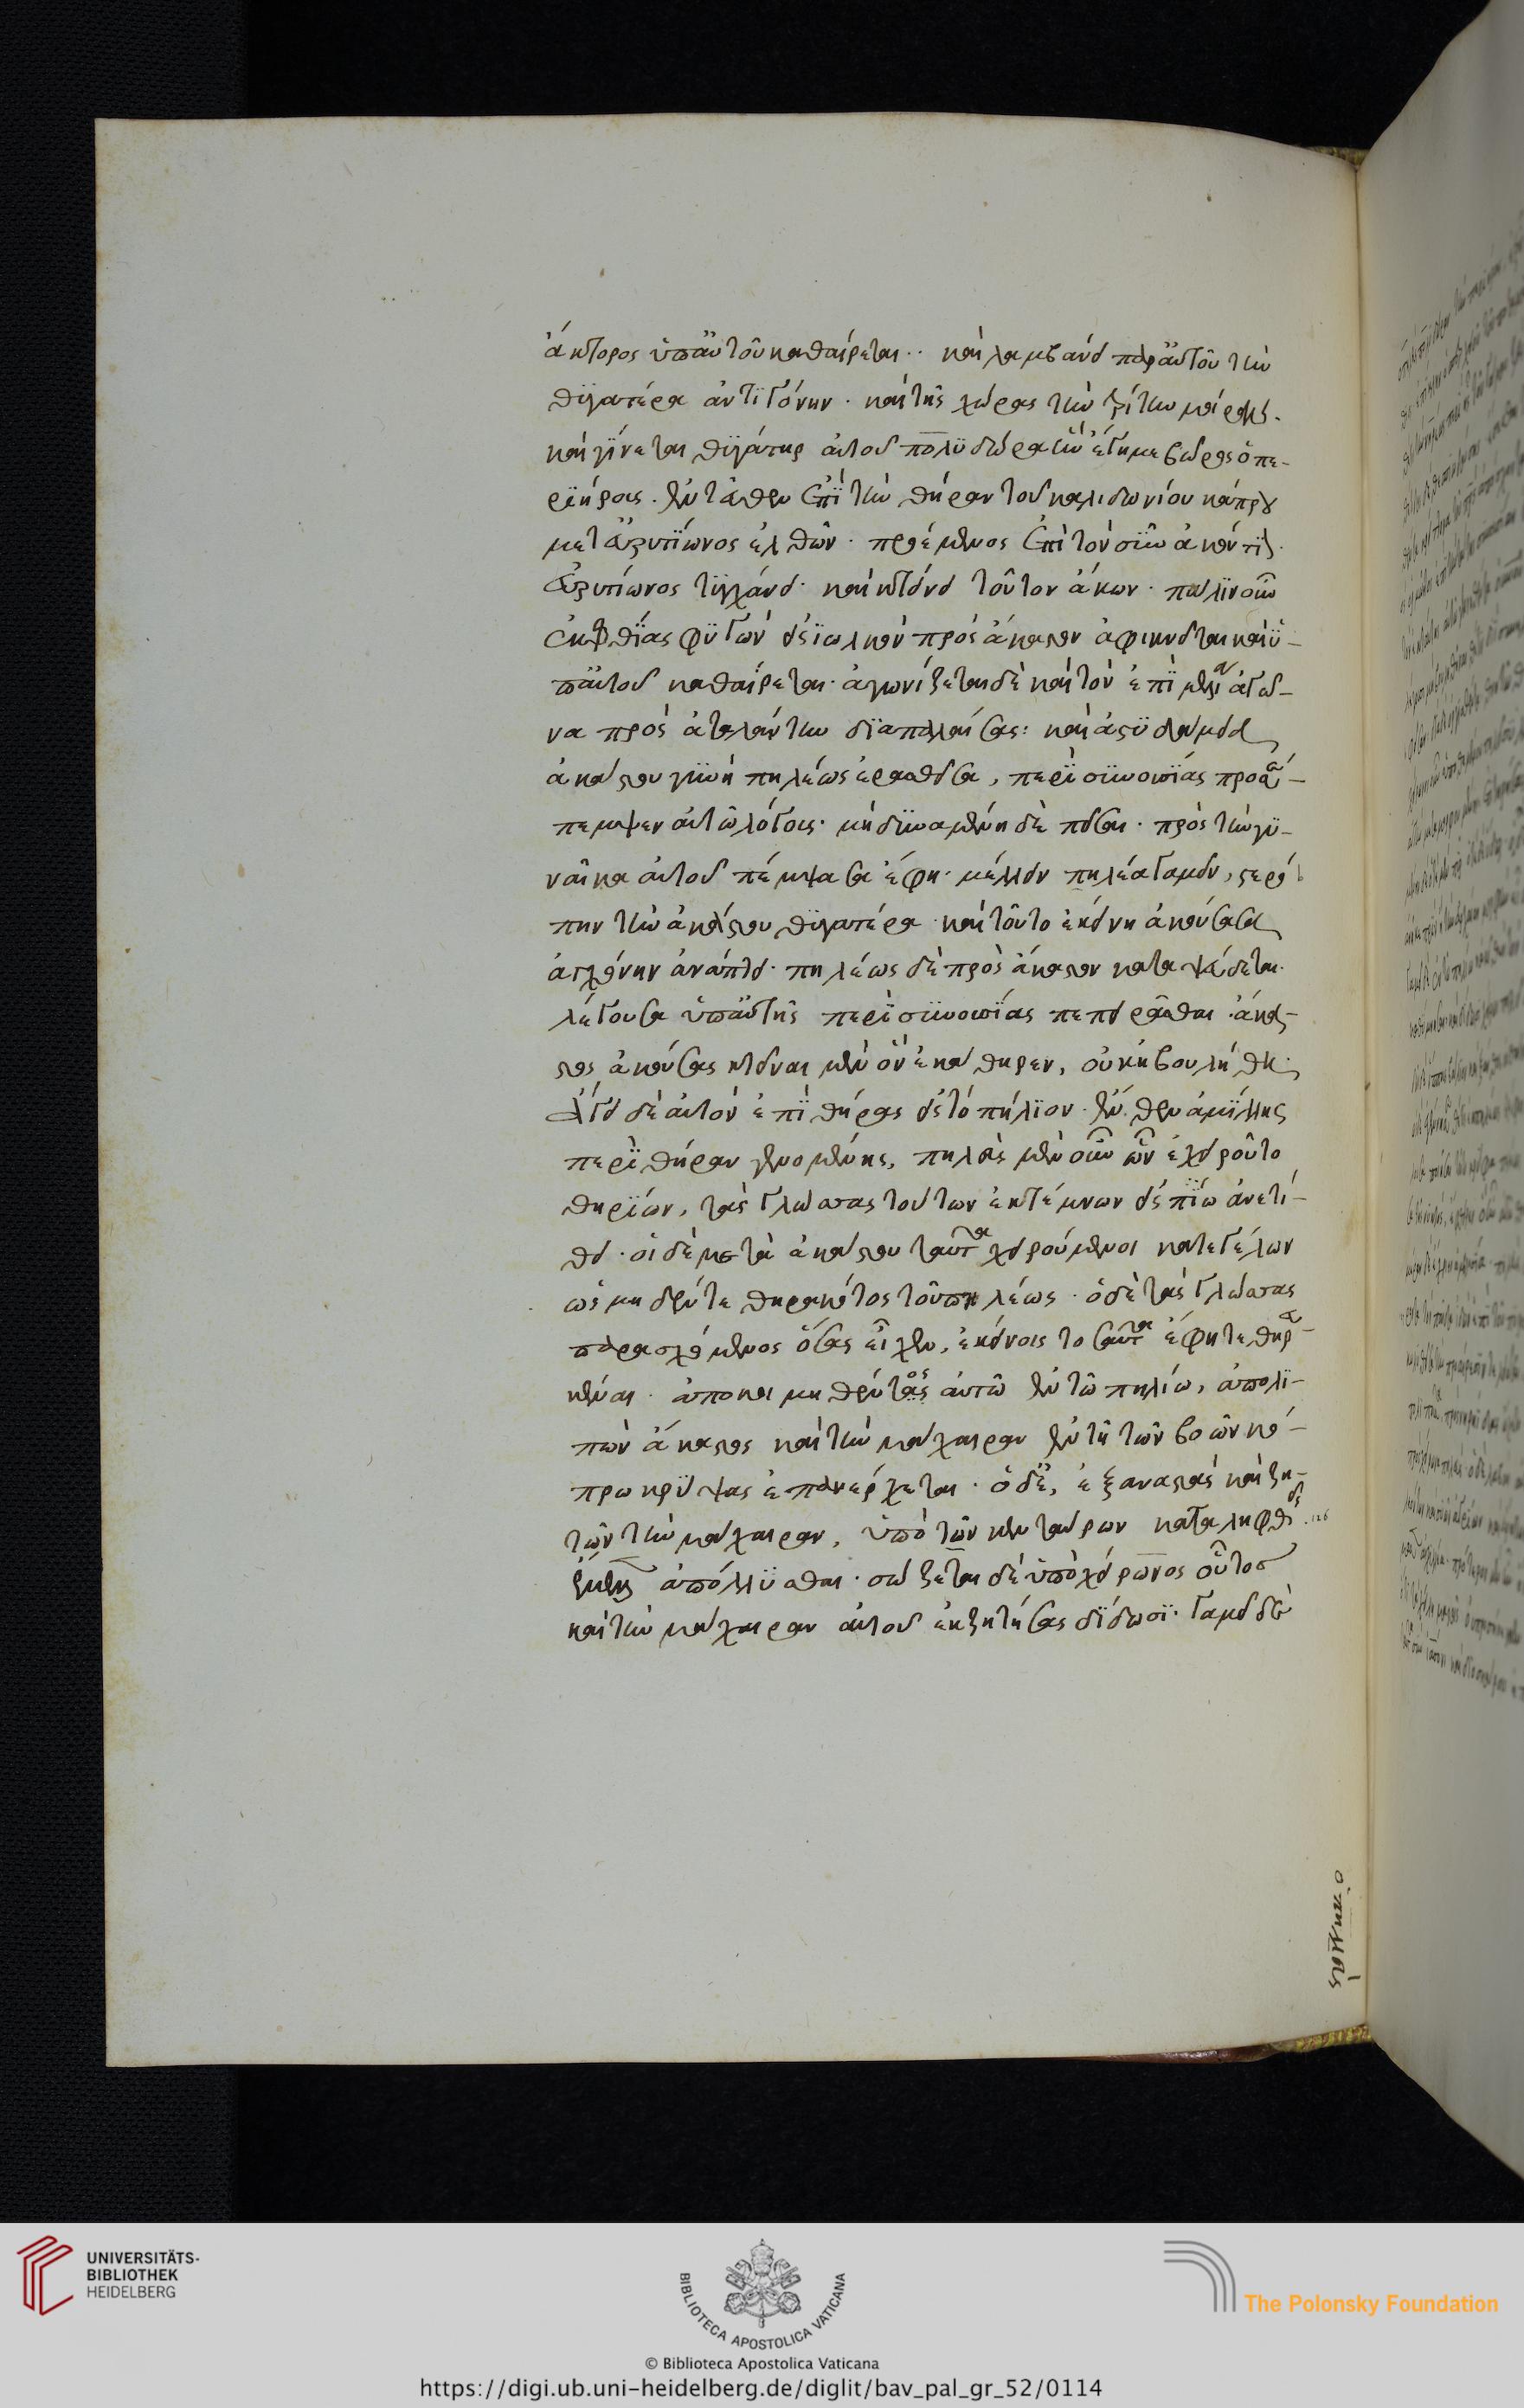 ἄκτορος ὑπ' αὐτοῦ καθαίρεται·· καὶ λαμβάνει παρ' αὐτοῦ τὴν
θϋγατέρα ἀντϊγόνην· καὶ τῆς χώρας τὴν τρίτην μοίραν·
καὶ γίνεται θϋγάτηρ αὐτοῦ πολϋδώρα ἣν ἔγημε βώρος ὁ πε-
ρϊήροις. ἐντεῦθεν ἐπῒ τὴν θήραν τοῦ καλιδωνίου κάπρου
μετ' εὐρυτΐωνος ἐλθὼν· προέμενος ἐπὶ τὸν σῦν ἀκόντϊον·
εὐρυτίωνος τϋγχάνει· καὶ κτείνει τοῦτον ἄκων· πάλϊν οὖν
ἐκ φθΐας φϋγὼν εἰς ϊωλκὸν πρὸς ἄκαστον ἀφικνεῖται καὶ ϋ-
π' αὐτοῦ καθαίρεται· ἀγωνίζεται δὲ καὶ τὸν ἐπῒ πελία ἀγῶ-
να πρὸς ἀταλάντην δϊαπαλαίσας: καὶ ἀστϋδάμεια
ἀκάστου γϋνὴ πηλέως ἐρασθεῖσα, περῒ συνουσΐας προσέ-
πεμψεν αὐτῶ λόγοις· μὴ δϋναμένη δὲ πεῖσαι· πρὸς τὴν γϋ-
ναῖκα αὐτοῦ πέμψασα ἔφη· μέλλειν πηλέα γαμεῖν, στερό
πην τὴν ἀκάστου θϋγατέρα· καὶ τοῦτο ἐκείνη ἀκούσασα
ἀγχόνην ἀνάπτει· πηλέως δὲ πρὸς ἄκαστον καταψεύδεται·
λέγουσα ὑπ' αὐτῆς περῒ συνουσΐας πεπειρᾶσθαι· ἄκα-
στος ἀκούσας κτεῖναι μὲν ὃν ἐκάθηρεν, οὐκ ἠβουλήθη·
ἄγει δὲ αὐτὸν ἐπῒ θήρας εἰς τὸ πήλϊον· ἔνθεν ἁμΐλλης
περῒ θήραν γενομένης, πηλεὺς μὲν οὖν ὧν ἐχειροῦτο
θηρΐων, τὰς γλώσσας τούτων ἐκτέμνων εἰς πΐω ἀνετί-
θει· οἱ δὲ μετὰ ἀκάστου ταῦτα χειρούμενοι κατεγέλων
ὡς μηδέν τε θηρακότος τοῦ πηλέως· ὁ δὲ τὰς γλώσσας
παρασχόμενος ὅσας εἶχεν, ἐκείνοις τοσαῦτα ἔφη τεθηρ-
κέναι· ἀποκοιμηθέντος αὐτῶ ἐν τῶ πηλίω, ἀπολι-
πὼν ἄκαστος καὶ τὴν μάχαιραν ἐν τῆ τῶν βοῶν κό-
πρω κρΰψας ἐπανέρχεται· ὁ δὲ, ἐξαναστὰς καὶ ζη-
τῶν τὴν μάχαιραν, ὑπὸ τῶν κενταύρων καταληφθεὶς
ἀπόλλϋσθαι· σώζεται δὲ ὑπὸ χείρωνος οὗτος
καὶ τὴν μάχαιραν αὐτοῦ ἐκζητήσας δΐδωσϊ· γαμεῖ δὲ
UNIVERSITÄTS-
BIBLIOTHEK
HEIDELBERG
BIBLIOTECA APOSTOLICA VATICANA
The Polonsky Foundation
© Biblioteca Apostolica Vaticana
https://digi.ub.uni-heidelberg.de/diglit/bav_pal_gr_52/0114